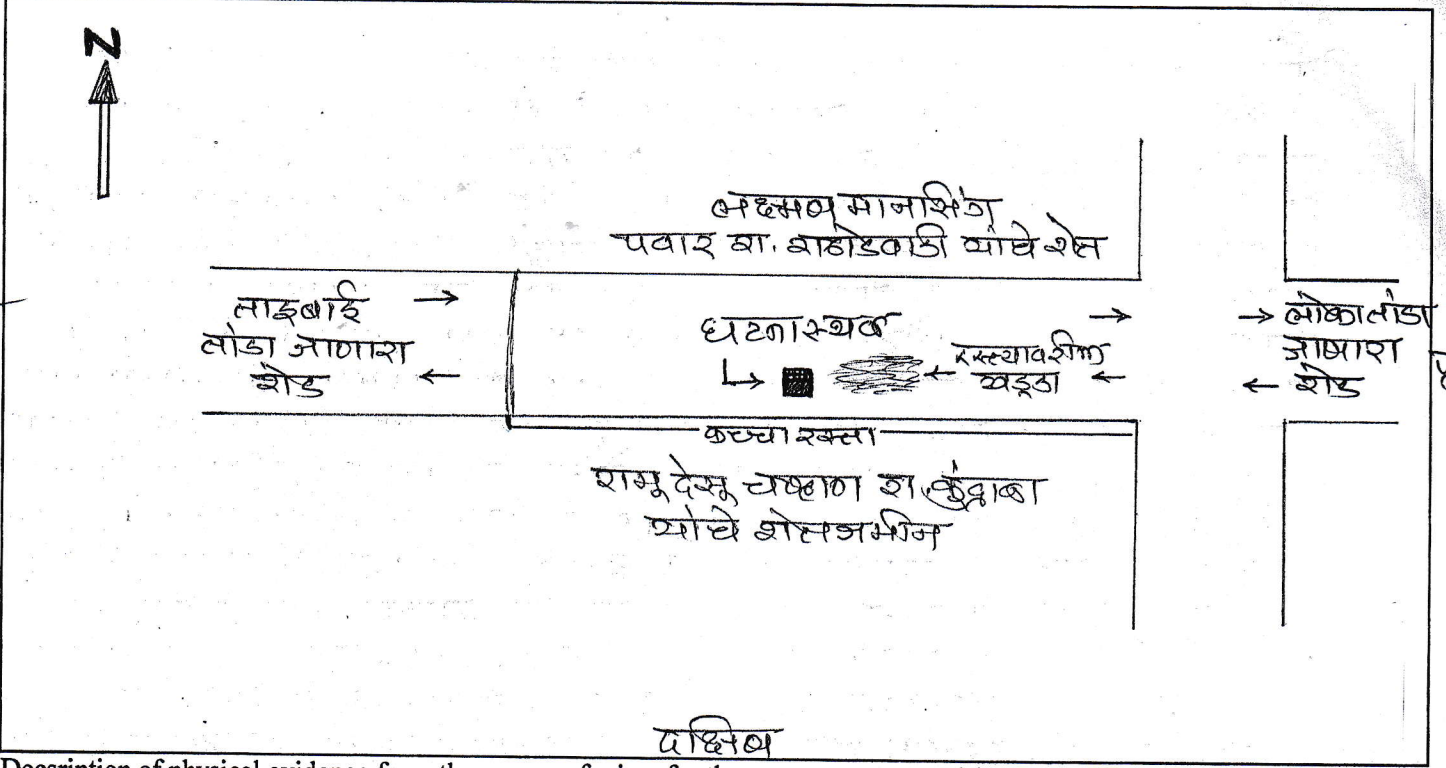 N
लक्ष्मण मानसिंग
पवार रा. राठोडवाडी यांचे शेत
ताइबाई
तांडा जाणारा
रोड
घटनास्थळ
रस्त्यावरील
खड्डा
लोकातांडा
जाणारा
रोड
कच्चा रस्ता
रामू देसू चव्हाण रा. कुंद्राळा
यांचे शेतजमीन
दक्षिण
Description of physical evidence from the scene of crime for the